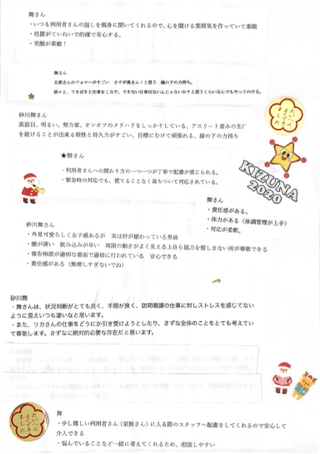 舞さん
・いつも利用者さんの話しを親身に聞いてくれるので、心を開ける雰囲気を作っていて素敵
・処置がていねいで的確で安心する。
・笑顔が素敵！
舞さん
砂川舞さん
真面目、明るい、努力家、オンオフのメリハリをしっかりしている、アスリート並みの生
を続けることが出来る根性と持久力がすごい、目標にむけて頑張れる、縁の下の力持ち
★舞さん
・利用者さんへの関わり方の一つ一つが丁寧で配慮が感じられる。
・緊急時の対応でも、慌てることなく落ちついて対応されている。
KIZUNA
2020
舞さん
・責任感がある。
・体力がある（体調管理が上手）
・対応が柔軟。
砂川舞さん
・外見可愛らしく女子感あるが
・懐が深い　飲み込みが早い　周囲の動きがよく見える上自ら協力を惜しまない所が尊敬できる
・報告相談が適切な場面で適切に行われている　安心できる
・責任感がある（無理しすぎないでね）
砂川舞
・舞さんは、状況判断がとても良く、手際が良く、訪問看護の仕事に対しストレスを感じてない
ように見えいつも凄いなと思います。
・また、リカさんの仕事をどうにか引き受けようとしたり、きずな全体のことをとても考えてい
て尊敬します。きずなに絶対的必要な存在だと思います。
舞
・少し難しい利用者さん（家族さん）に入る際のスタッフへ配慮をしてくれるので安心して
介入できる
・悩んでいることなど一緒に考えてくれるため、相談しやすい